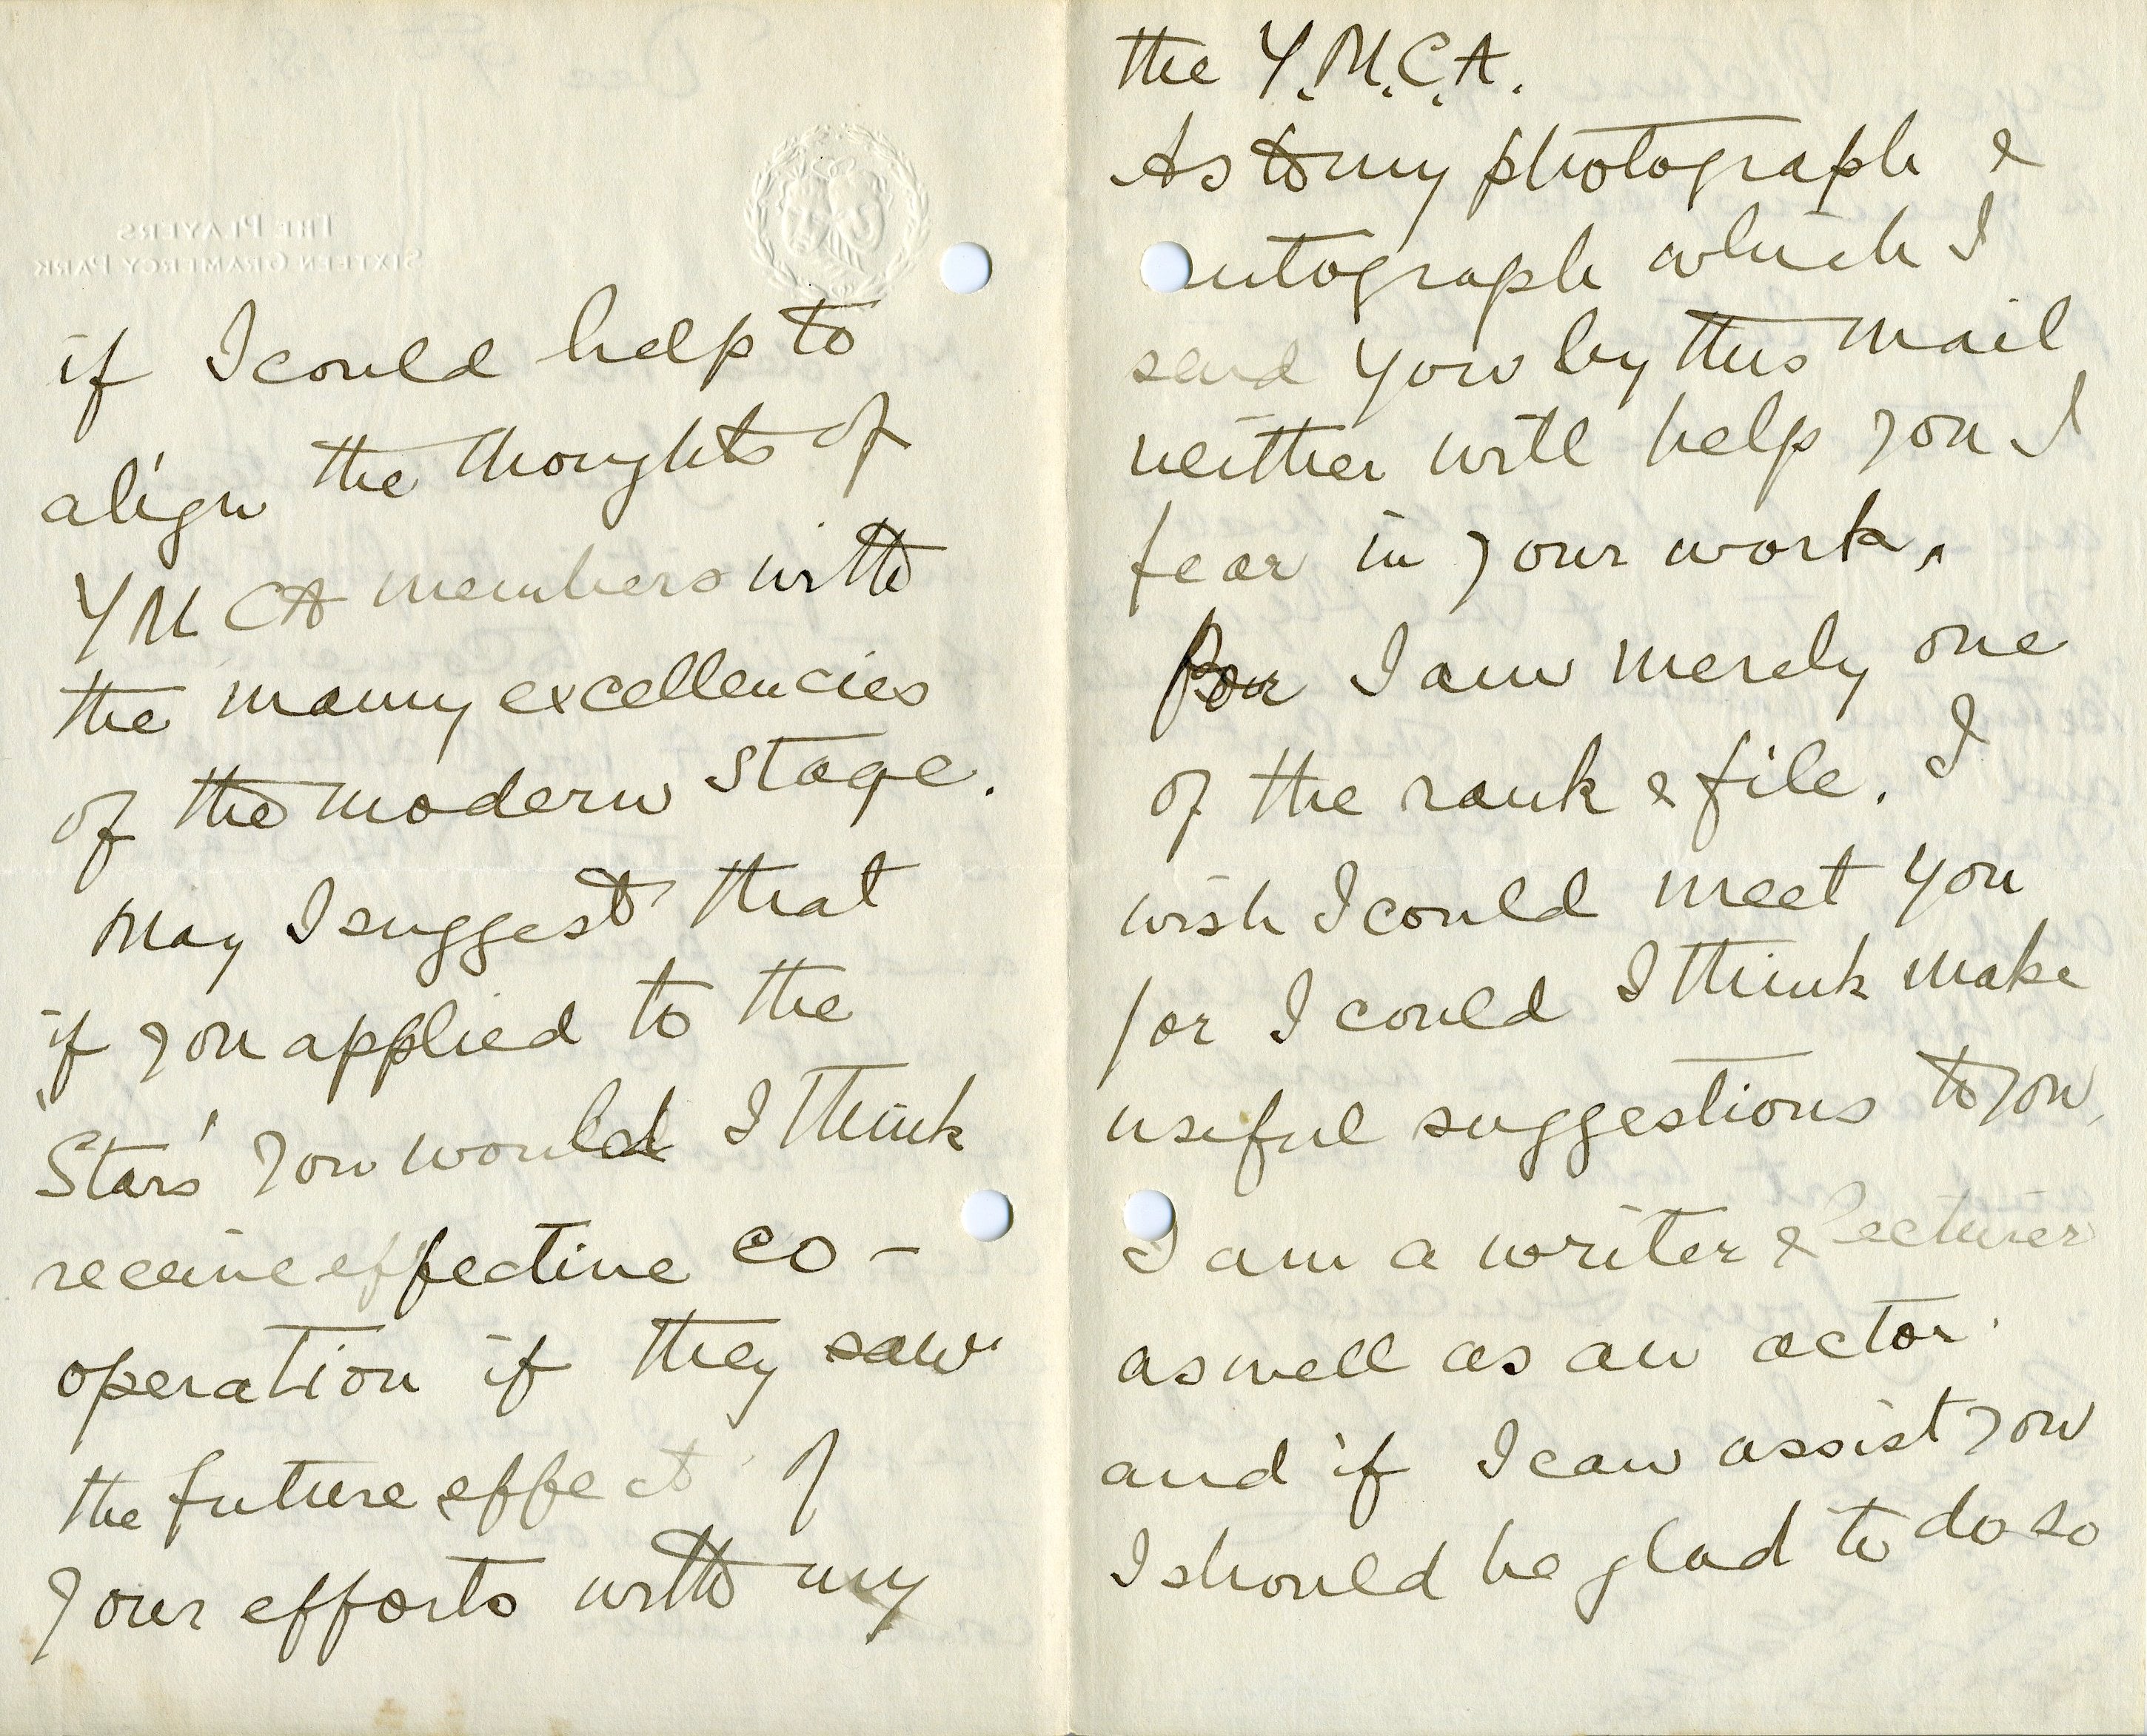 THE PLAYERS
SIXTEEN GRAMERCY PARK
if I could help to
align the thoughts of
YMCA members with
the many excellencies
of the modern stage.
May I suggest that
if you applied to the
"Stars" you would I think
receive effective co-
operation if they saw
the future effect of
your efforts with my
the Y.M.C.A.
As to my photograph &
autograph which I
send you by this mail
neither will help you I
fear in your work.
For I am merely one
of the rank & file. I
wish I could meet you
for I could I think make
useful suggestions to you.
I am a writer & lecturer
as well as an actor.
and if I can assist you
I should be glad to do so